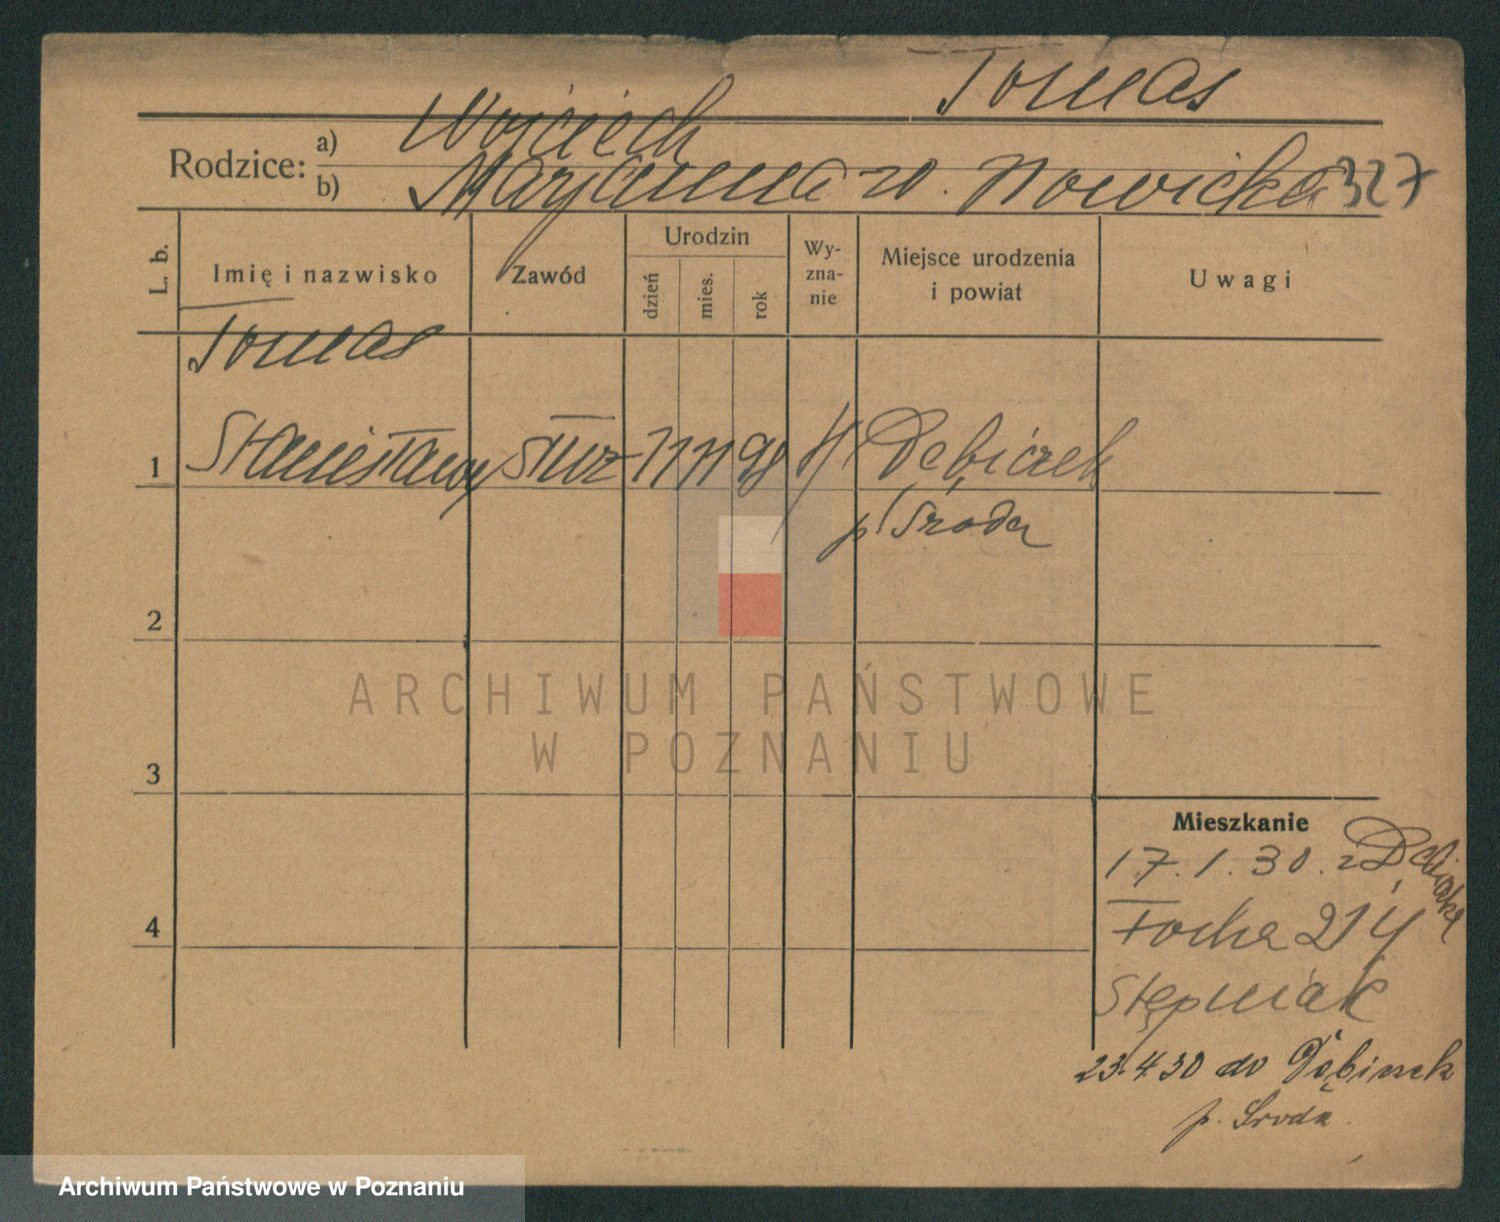 Tomas
Rodzice: a) Wojciech
b) Marjanna z d. Nowicka 327
L. b. Imię i nazwisko Zawód Urodzin dzień mies. rok Wy-zna-nie Miejsce urodzenia i powiat Uwagi
Tomas
1 Stanisława służ 11 11 98 Dębiczek
p. Środa
2
ARCHIWUM PAŃSTWOWE
W POZNANIU
3
Mieszkanie
17.1.30. z Dębiczka
4 Focha
Stępniak
23.4.30 do Dębiczek
p. Środa.
Archiwum Państwowe w Poznaniu